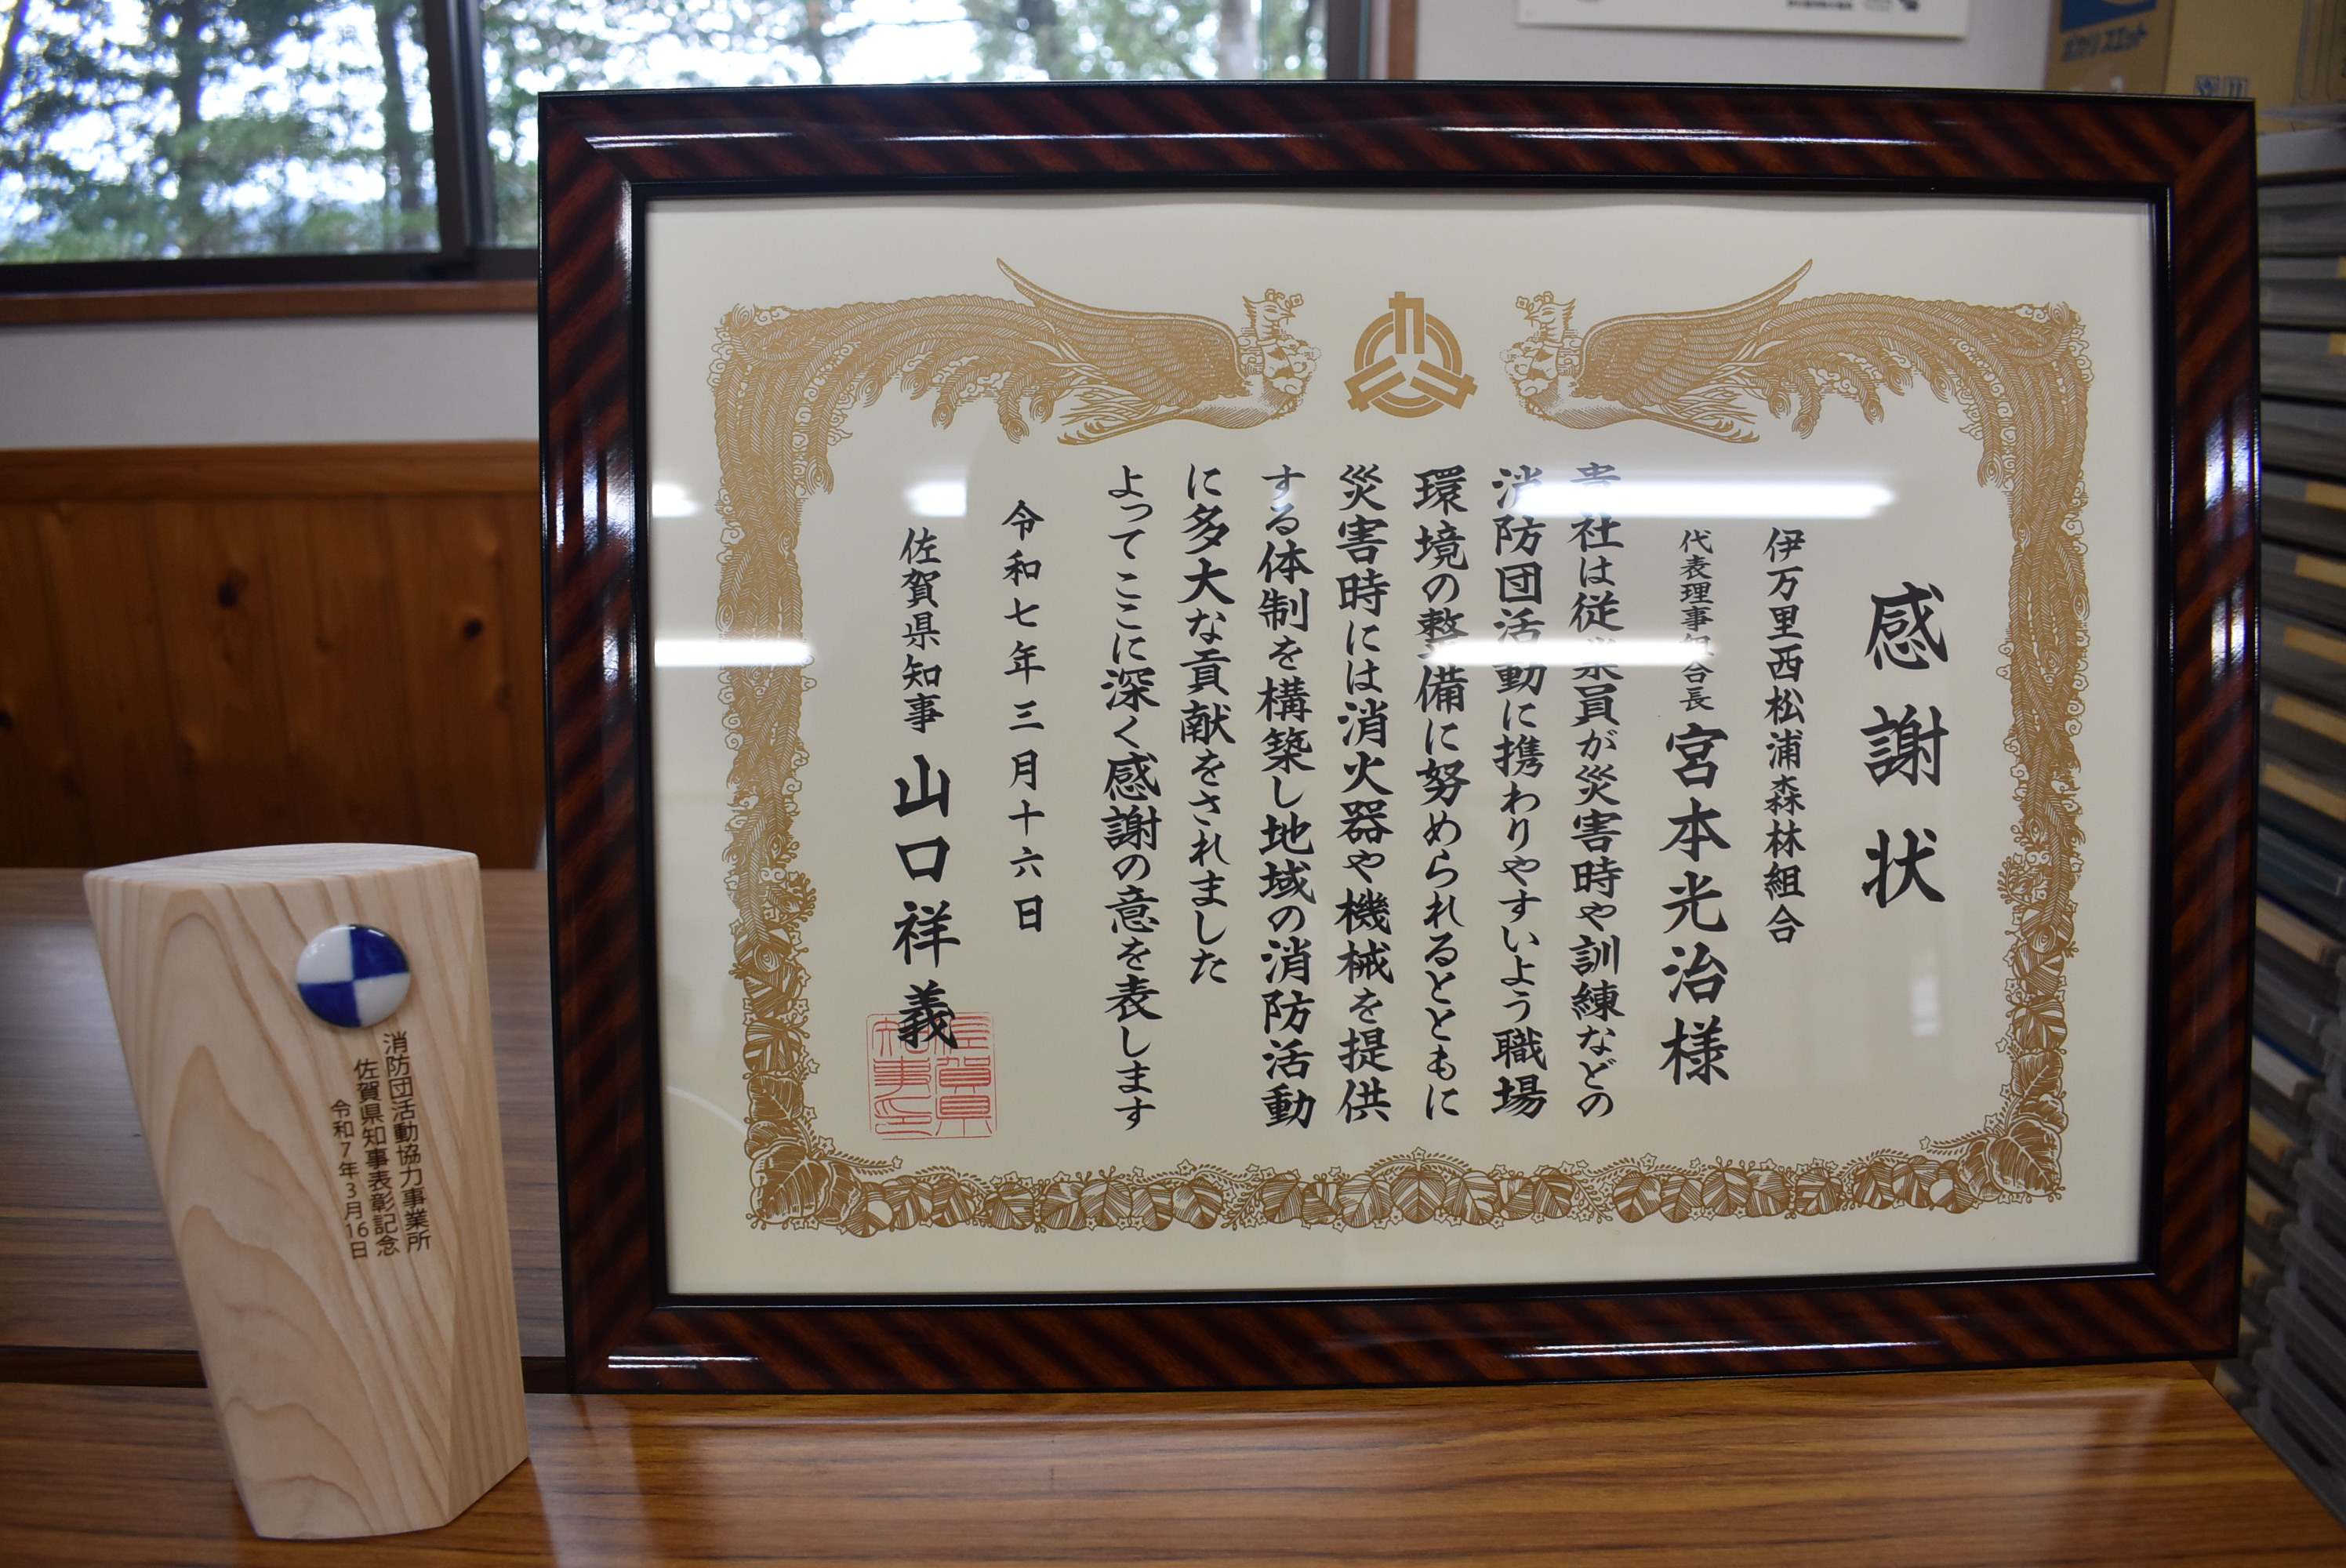 感謝状
伊万里西松浦森林組合
代表理事組合長 宮本光治様
貴社は従業員が災害時や訓練などの
消防団活動に携わりやすいよう職場
環境の整備に努められるとともに
災害時には消火器や機械を提供
する体制を構築し地域の消防活動
に多大な貢献をされました
よってここに深く感謝の意を表します
令和七年三月十六日
佐賀県知事 山口祥義
佐賀県
知事印
消防団活動協力事業所
佐賀県知事表彰記念
令和7年3月16日
ポカリスエット